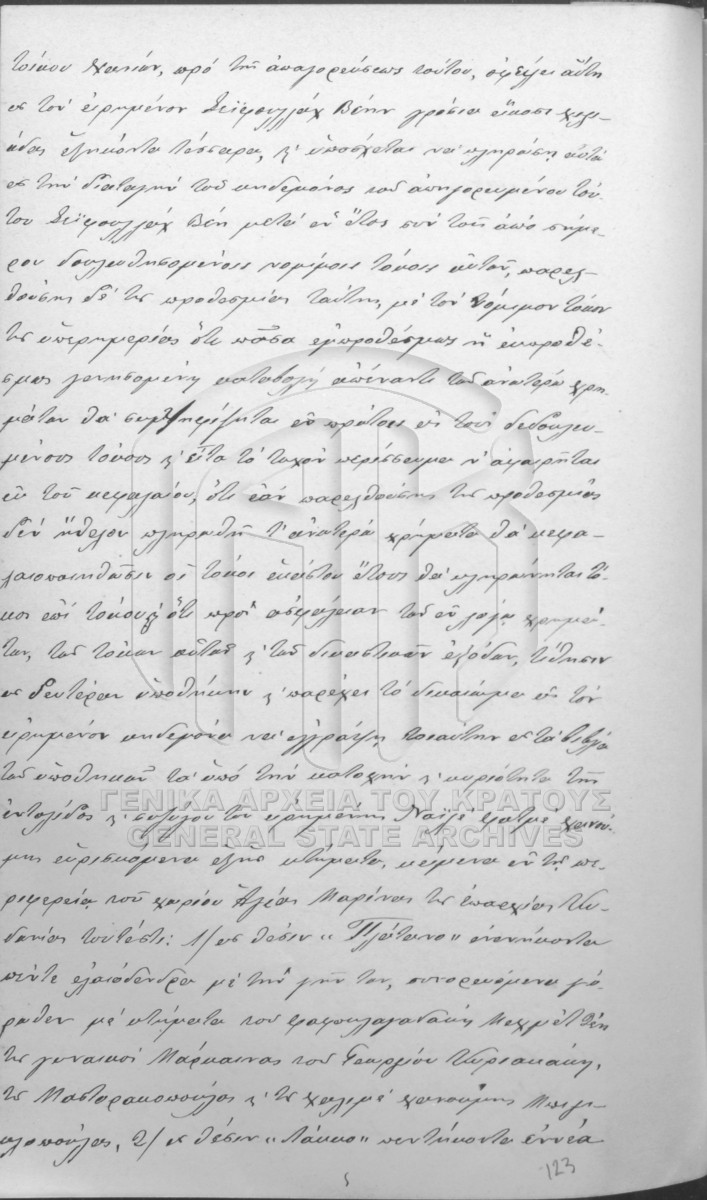 τούτου χωρίου, πρό τῆς ἀπαγορεύσεως τούτου, ὀφείλει αὕτη
εἰς τόν εἰρημένον Σεϊφουλλάχ Βέην γρόσια εἴκοσι χιλι-
άδας ἑξήκοντα τέσσαρα, κ' ὑπόσχεται νά πληρώσῃ αὐτά
εἰς τήν διαταγήν τοῦ κηδεμόνος τοῦ ἀπηγορευμένου τού-
του Σεϊφουλλάχ Βέη μετά ἕν ἔτος σύν τοῖς ἀπό σήμε-
ρον δουλευθησομένοις νομίμοις τόκοις αὐτῶν, παρελ-
θούσης δέ τῆς προθεσμίας ταύτης, μέ τόν νόμιμον τόκον
τῆς ὑπερημερίας ὅτι πᾶσα ἐμπροθέσμως ἤ ἐκπροθέ-
σμως γενησομένη καταβολή ἀπέναντι τῶν ἀνωτέρω χρη-
μάτων θά συμψηφίζηται ἐν πρώτοις εἰς τούς δεδουλευ-
μένους τόκους κ' εἶτα τό τυχόν περίσσευμα ν' ἀφαιρῆται
ἐκ τοῦ κεφαλαίου, ὅτι ἐάν παρελθούσης τῆς προθεσμίας
δέν ἤθελον πληρωθῆ τ' ἀνωτέρω χρήματα θά κεφα-
λαιοποιηθῶσιν οἱ τόκοι ἑκάστου ἔτους θά πληρώνηται τό-
κος ἐπί τόκου κ' ὅτι πρός ἀσφάλειαν τῶν ἐν λόγῳ χρημά-
των, τῶν τόκων αὐτῶν κ' τῶν δικαστικῶν ἐξόδων, τίθησιν
εἰς δευτέραν ὑποθήκην κ' παρέχει τό δικαίωμα εἰς τόν
εἰρημένον κηδεμόνα νά ἐγγράψῃ τοιαύτην εἰς τά βιβλία
τῶν ὑποθηκῶν τά ὑπό τήν κατοχήν κ' κυριότητα τῆς
ἐντολίδος κ' συζύγου του εἰρημένης Ναϊλέ Φατμέ Χανού-
μης εὑρισκόμενα ἑξῆς κτήματα, κείμενα ἐν τῇ πε-
ριφερείᾳ τοῦ χωρίου Ἁγίας Μαρίνας τῆς ἐπαρχίας Κυ-
δωνίας τουτέστι: 1/ εἰς θέσιν "Πλάτανο" ἐνενήκοντα
πέντε ἐλαιόδενδρα μέ τήν γῆν των, συνορευόμενα γύ-
ρωθεν μέ κτήματα τοῦ Μεχμέτ Βέη
τῆς γυναικός Μάρκαινας τοῦ Γεωργίου Κυριακάκη,
τῆς Μαστορακοπούλας κ' τῆς Χαλιμέ Χανούμης
2/ εἰς θέσιν "Λάκκο" πεντήκοντα ἐννέα
5
123
ΓΕΝΙΚΑ ΑΡΧΕΙΑ ΤΟΥ ΚΡΑΤΟΥΣ
GENERAL STATE ARCHIVES